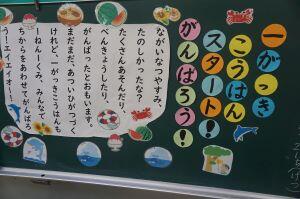 一がっき
こうはん
スタート！
がんばろう！
ながいなつやすみ、
たのしかったなぁ。
たくさんあそんだり、
べんきょうしたり、
がんばったとおもいます。
まだまだ、あついひがつづく
けれど、一がっきこうはんも
一ねん一くみ、みんなで
ちからをあわせてがんばろ
う！エイエイオー！